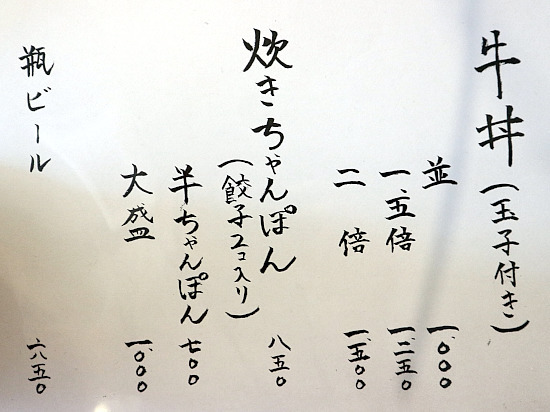 牛丼(玉子付き)
並 一、〇〇〇
一、五倍 一、二五〇
二倍 一、五〇〇
炊きちゃんぽん 八五〇
(餃子2コ入り)
半ちゃんぽん 七〇〇
大盛 一、〇〇〇
瓶ビール 六八五〇